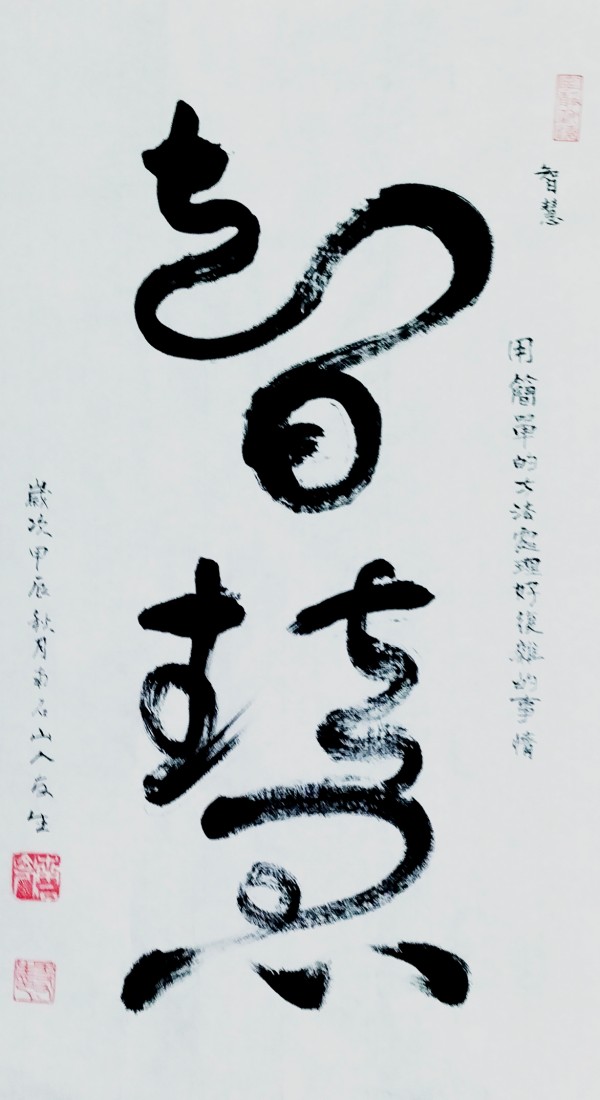 智慧
用簡單的方法處理好復雜的事情
智慧
歲次甲辰秋月南石山人友生